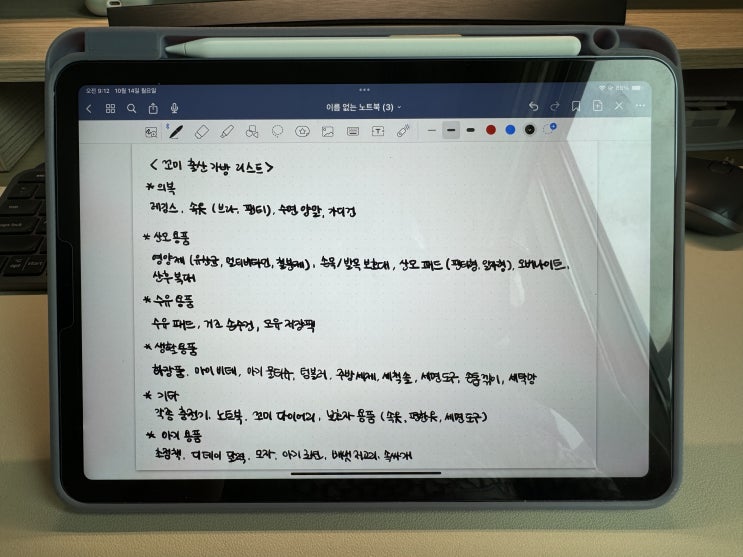 오전 9:12 10월 14일 월요일
88%
이름 없는 노트북 (3)
< 꼬미 출산가방 리스트 >
* 의복
레깅스, 속옷 (브라, 팬티), 수면 양말, 가디건
* 산모용품
영양제 (유산균, 멀티비타민, 철분제), 손목/발목 보호대, 산모 패드 (팬티형, 일자형), 오버나이트,
산후 복대
* 수유 용품
수유 패드, 거즈 손수건, 모유 저장팩
* 생활용품
화장품, 마이비데, 아기 물티슈, 텀블러, 주방세제, 세척솔, 세면도구, 손톱깎이, 세탁망
* 기타
각종 충전기, 노트북, 꼬미 다이어리, 보호자 용품 (속옷, 편한옷, 세면도구)
* 아기 용품
초점책, 디데이 달력, 모자, 아기 화변, 배냇저고리, 속싸개